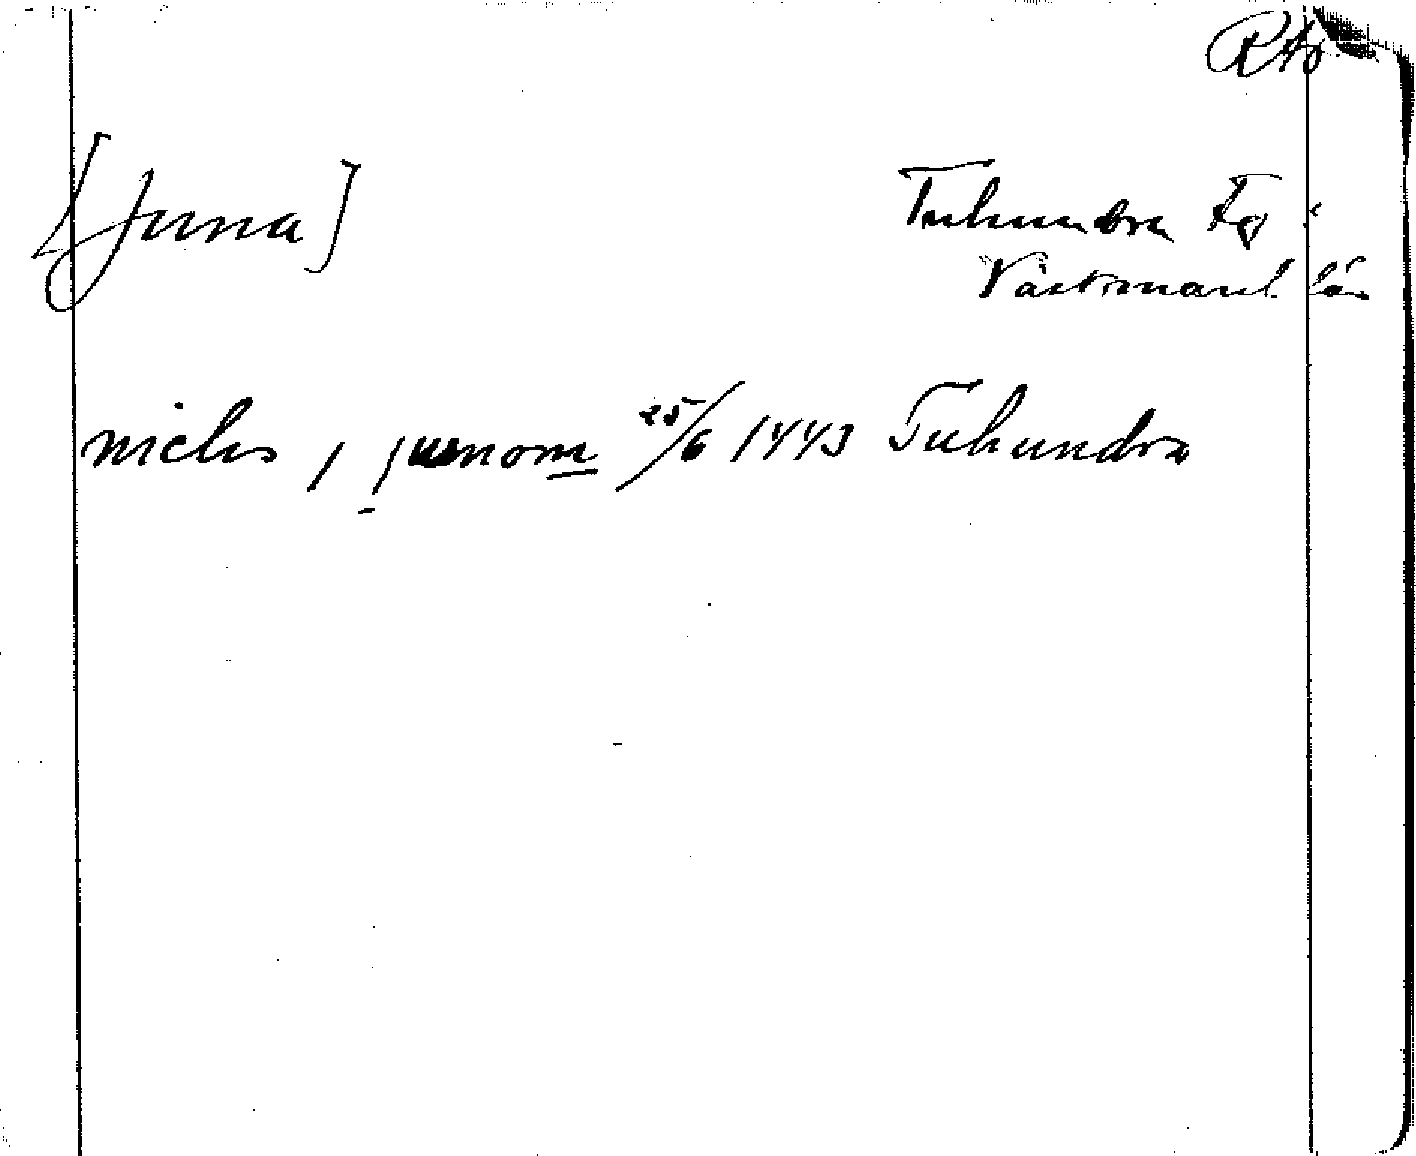 RAö
[Juna]
Tuhundra tg i
Västmanl. län
niclis, i junom 25/6 1443 Tuhundra